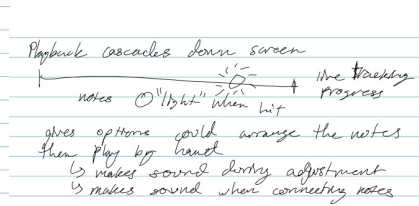 Playback cascades down screen
line tracking
progress
notes "light" when hit
gives options could arrange the notes
then play by hand
↳ makes sound during adjustment
↳ makes sound when connecting notes